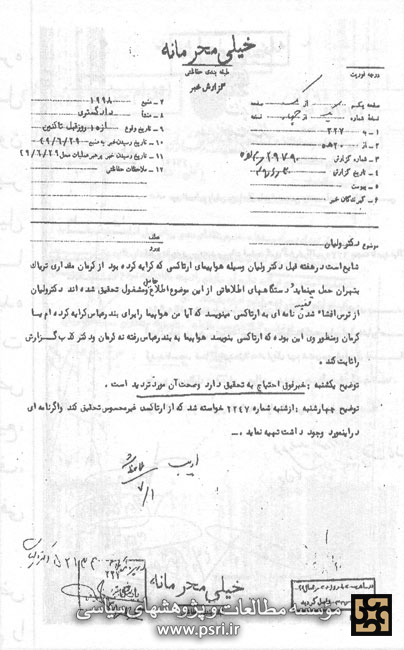 خیلی محرمانه
طبقه بندی حفاظتی
گزارش خبر
درجه فوریت
صفحه یکم از صفحه
نسخه شماره از نسخه
۱ – به ۲۲۷
۲ – از ۲۰ه۵
۳ – شماره گزارش
۴ – تاریخ گزارش
۵ – پیوست
۶ – گیرندگان خبر
۷ – منبع ۱۹۹۸
۸ – منشأ دادگستری
۹ – تاریخ وقوع از ۱۵ روز قبل تاکنون
۱۰ – تاریخ رسیدن خبر به منبع ۴۹/۶/۲۹
۱۱ – تاریخ رسیدن خبر به رهبر عملیات محل ۴۹/۶/۲۹
۱۲ – ملاحظات حفاظتی
موضوع دکتر ولیان
شایع است در هفته قبل دکتر ولیان وسیله هواپیمای ارتاکسی که کرایه کرده بود از کرمان مقداری تریاک
بتهران حمل مینماید دستگاههای اطلاعاتی از این موضوع اطلاع حاصل و مشغول تحقیق شده اند دکتر ولیان
از ترس افشاء شدن قضیه نامه ای به ارتاکسی مینویسد که آیا من هواپیما را برای بندرعباس کرایه کرده ام یا
کرمان و منظور وی این بوده که ارتاکسی بنویسد هواپیما به بندرعباس رفته نه کرمان و دفتر کذب گزارش
را ثابت کند .
توضیح یکشنبه : خبر فوق احتیاج به تحقیق دارد و صحت آن مورد تردید است .
توضیح چهارشنبه : از شنبه شماره ۲۲۴۷ خواسته شد که از ارتاکسی غیر محسوس تحقیق کند و اگر نامه ای
در اینمورد وجود داشت تهیه نماید .
ادیب
۷/۱
۲۲۷
خیلی محرمانه
موسسه مطالعات و پژوهشهای سیاسی
www.psri.ir